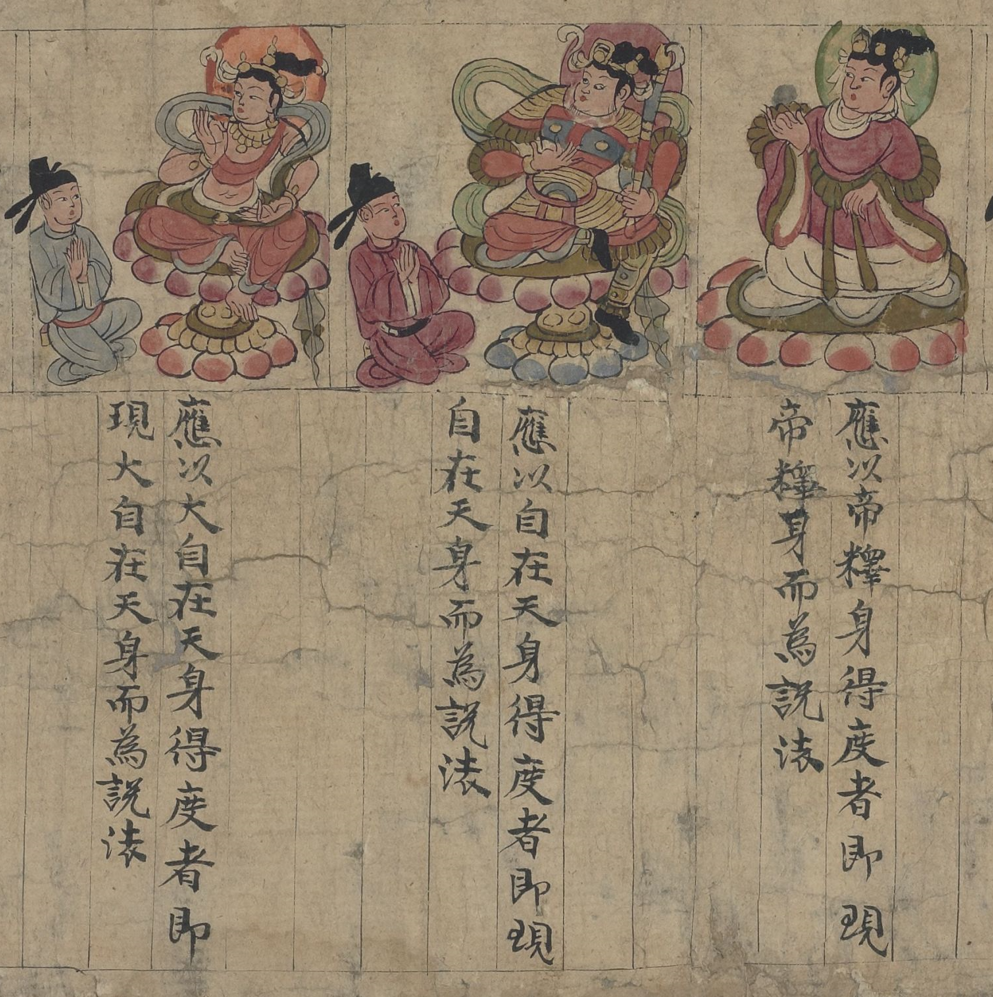 應以帝釋身得度者即現
帝釋身而為說法
應以自在天身得度者即現
自在天身而為說法
應以大自在天身得度者即
現大自在天身而為說法